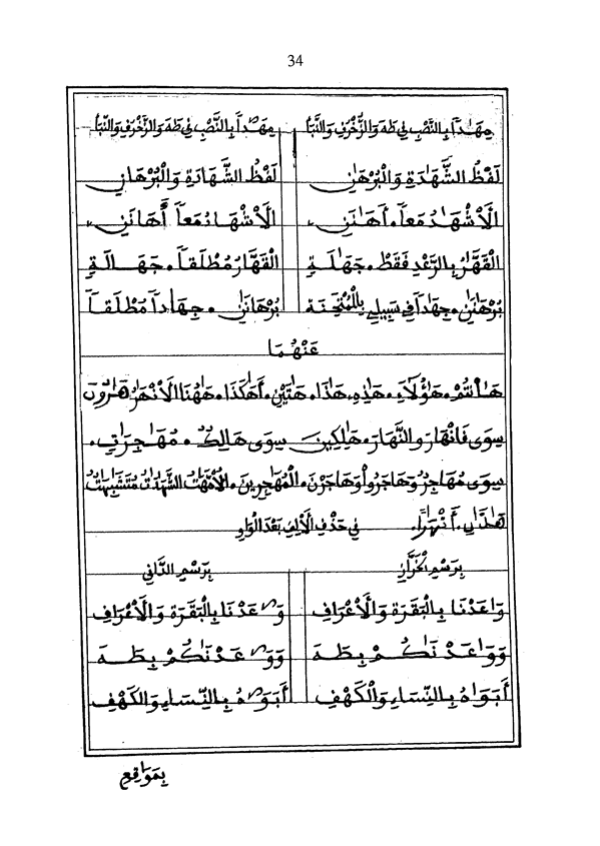 34
مِهَٰداً بِالنَّصْبِ فِي طَهَ وَالزُّخْرُفِ وَالنَّبَإِ مِهَٰداً بِالنَّصْبِ فِي طَهَ وَالزُّخْرُفِ وَالنَّبَإِ
لَفْظُ الشَّهَٰدَةِ وَالْبُرْهَٰنِ لَفْظُ الشَّهَادَةِ وَالْبُرْهَانِ
الْأَشْهَٰدُ مَعاً. أَهَٰنَنِ. الْأَشْهَادُ مَعاً أَهَانَنِ
الْقَهَّٰرُ بِالرَّعْدِ فَقَطْ. جَهَٰلَةٍ الْقَهَّارُ مُطْلَقاً. جَهَالَةٍ
بُرْهَٰنَٰنِ. جِهَٰداً فِي سَبِيلِي بِالْمُمْتَحِنَةِ بُرْهَانَٰنِ. جِهَاداً مُطْلَقاً
عَنْهُمَا
هَٰأَنتُمْ. هَٰؤُلَاءِ. هَٰذِهِ. هَٰذَا. هَٰتَيْنِ. أَهَٰكَذَا. هَٰهُنَا الْأَنْهَٰرُ هَٰرُونَ
سِوَى فَانْهَارَ وَالنَّهَارَ. هَٰلِكِينَ سِوَى هَالِكٌ. مُهَٰجِرَٰتٍ.
سِوَى مُهَاجِرٌ وَهَاجَرُوا وَهَاجَرْنَ. الْمُهَٰجِرِينَ. الْأُمَّهَٰتُ الشَّهَٰدَٰتُ مُتَشَٰبِهَٰتٌ
هَٰذَٰنِ. أَنْهَٰراً. فِي حَذْفِ الْأَلِفِ بَعْدَ الْوَاوِ
بِرَسْمِ الْخَرَّازِ بِرَسْمِ الدَّانِي
وَاعَدْنَا بِالْبَقَرَةِ وَالْأَعْرَافِ وَٰعَدْنَا بِالْبَقَرَةِ وَالْأَعْرَافِ
وَوَاعَدْنَٰكُمْ بِطَهَ وَوَٰعَدْنَٰكُمْ بِطَهَ
أَبَوَاهُ بِالنِّسَاءِ وَالْكَهْفِ أَبَوَٰهُ بِالنِّسَاءِ وَالْكَهْفِ
بِمَوَٰقِعِ